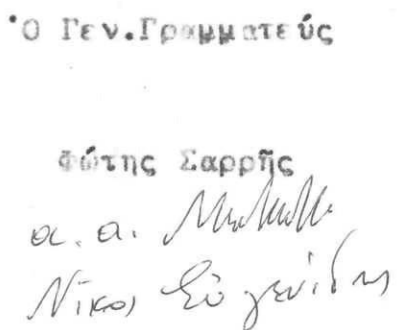 Ὁ Γεν.Γραμματεύς
Φώτης Σαρρῆς
α.α.
Νίκος Εὐγενίδης